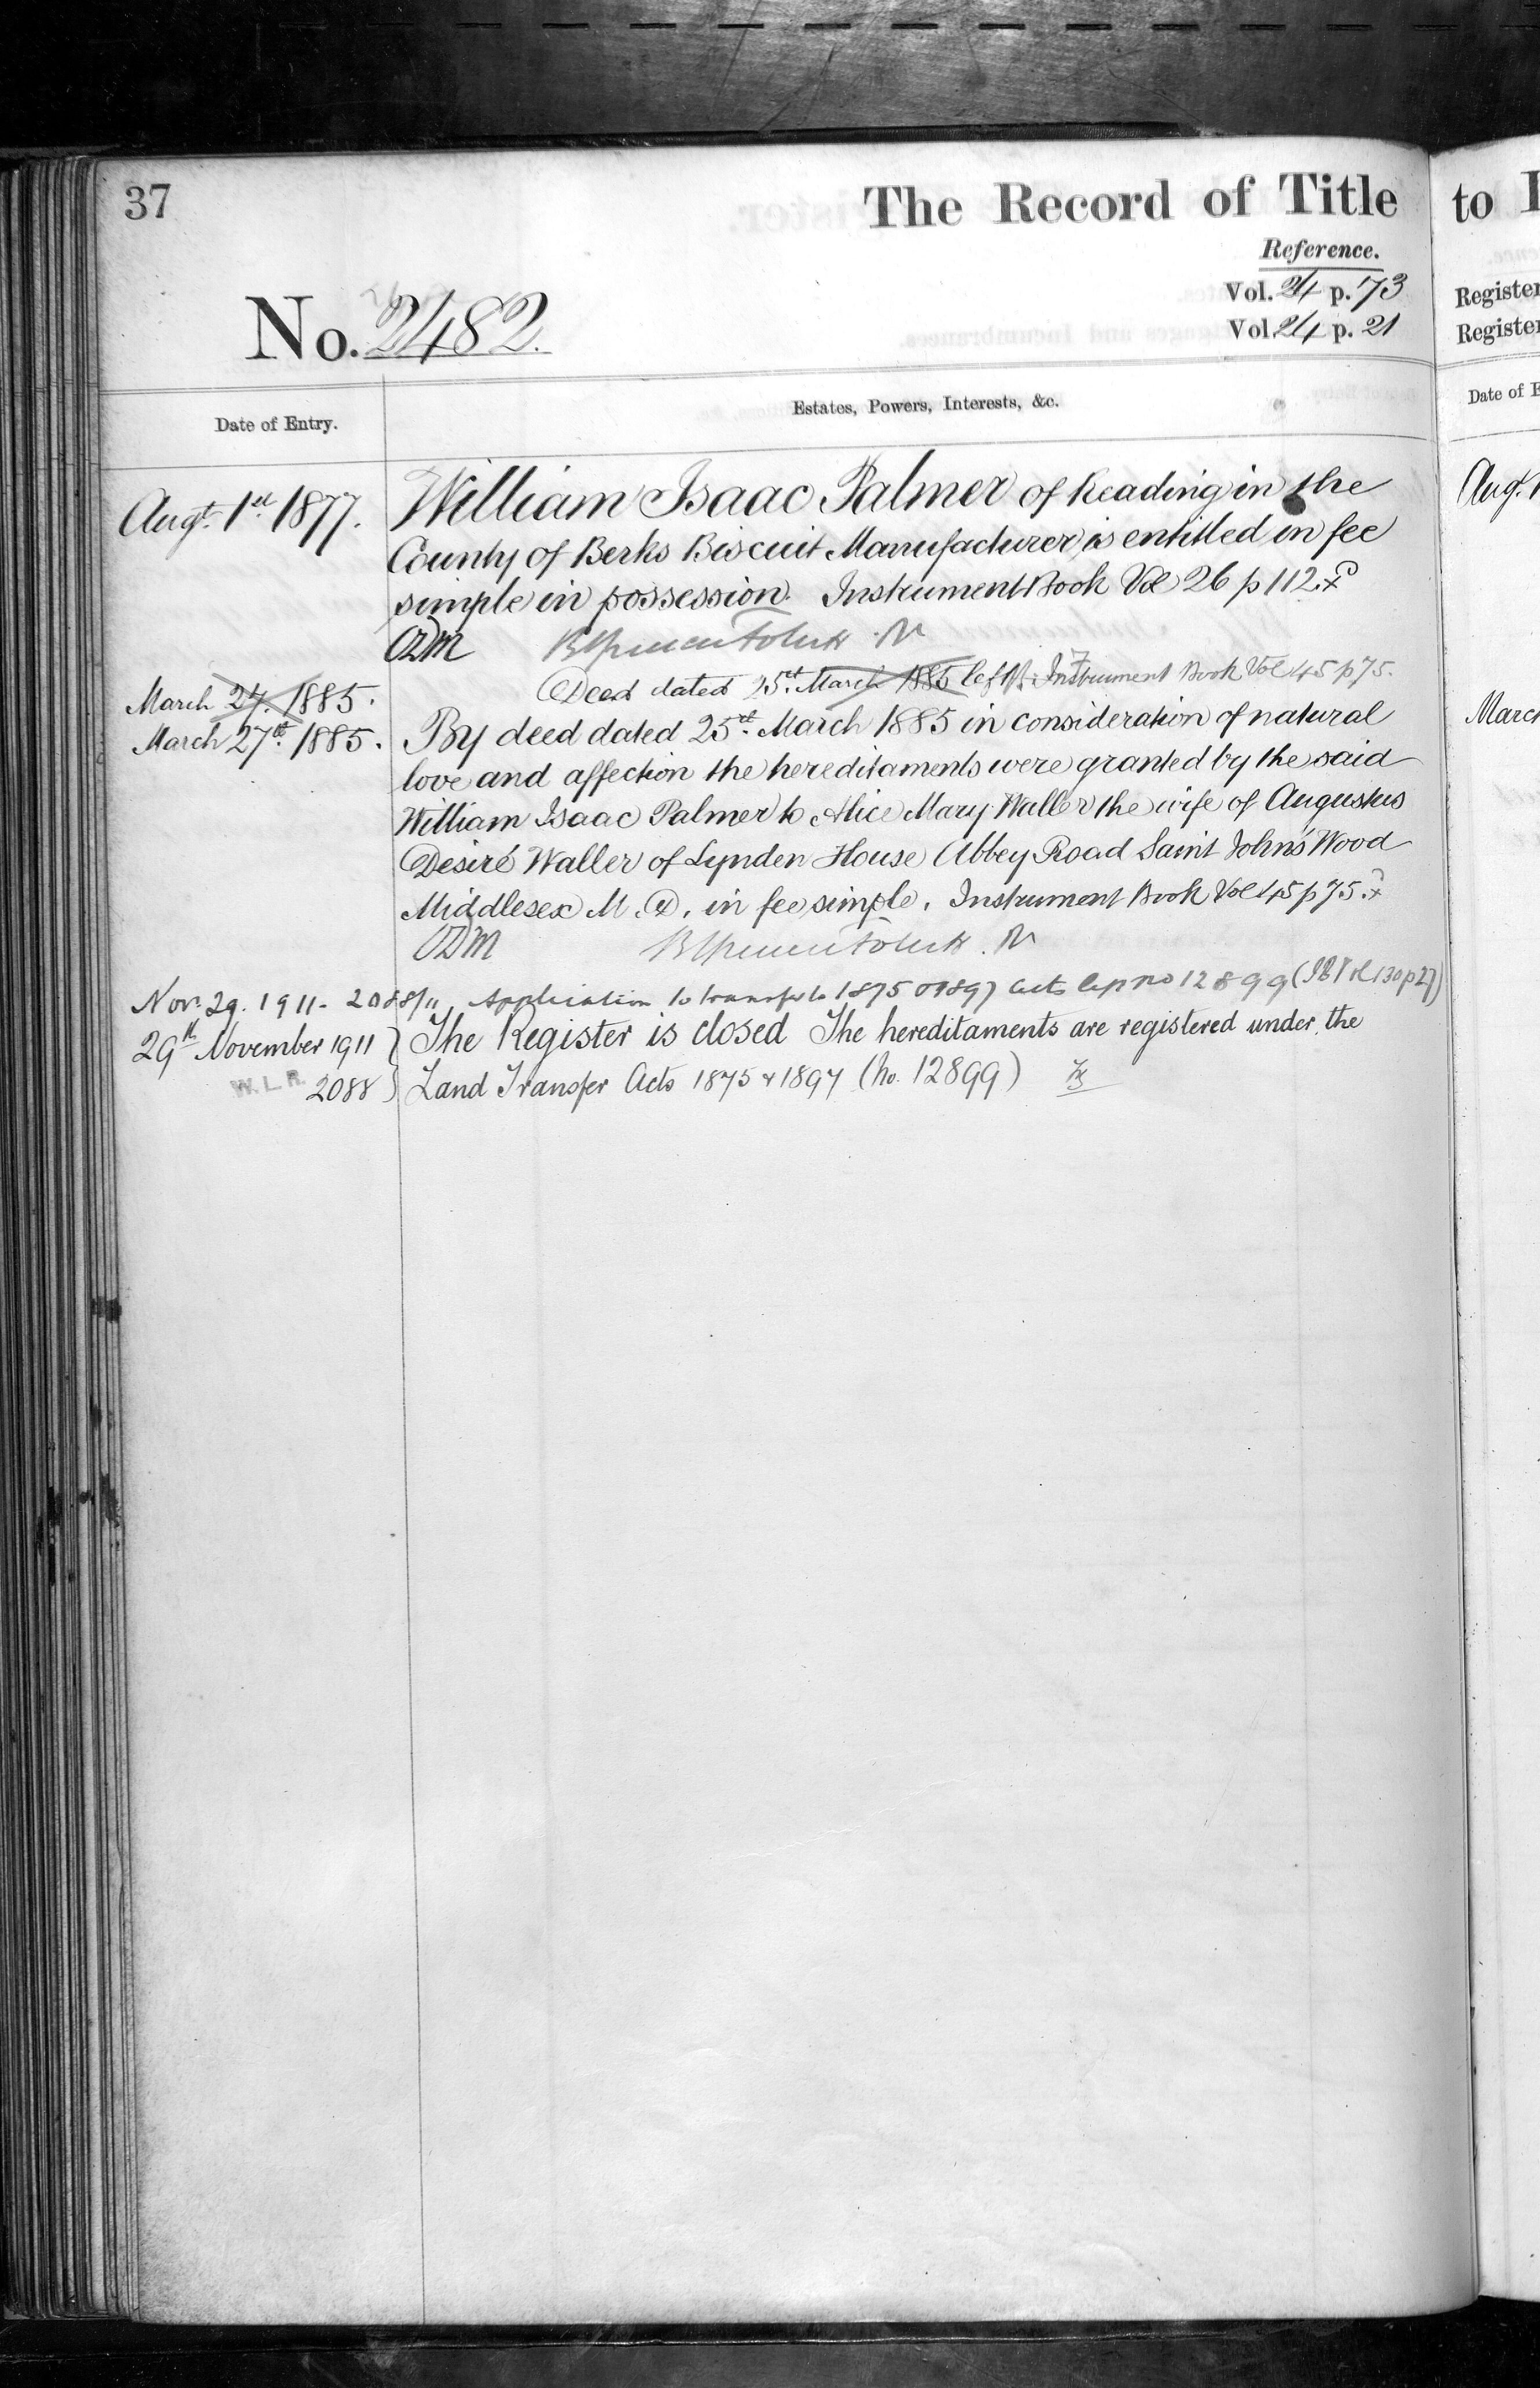 37
The Record of Title
Reference.
No. 2482.
Vol. 24 p. 73
Vol. 24 p. 21
Date of Entry.
Estates, Powers, Interests, &c.
Augt. 1st 1877.
William Isaac Palmer of Reading in the
County of Berks Biscuit Manufacturer is entitled in fee
simple in possession. Instrument Book Vol 26 p 112.
March 27. 1885.
Deed dated 25th. March 1885 left. Instrument Book Vol 45 p 75.
March 27th. 1885.
By deed dated 25th. March 1885 in consideration of natural
love and affection the hereditaments were granted by the said
William Isaac Palmer to Alice Mary Waller the wife of Augustus
Desiré Waller of Lynden House Abbey Road Saint John's Wood
Middlesex M.D. in fee simple. Instrument Book Vol 45 p 75.
Nov. 29. 1911 - 2088/11 Application to transfer to 1875 & 1897 Acts no 12899
29th November 1911
2088
W.L.R.
The Register is closed The hereditaments are registered under the
Land Transfer Acts 1875 & 1897 (No. 12899)
to
Register
Register
Date of E
Augt. 1
March